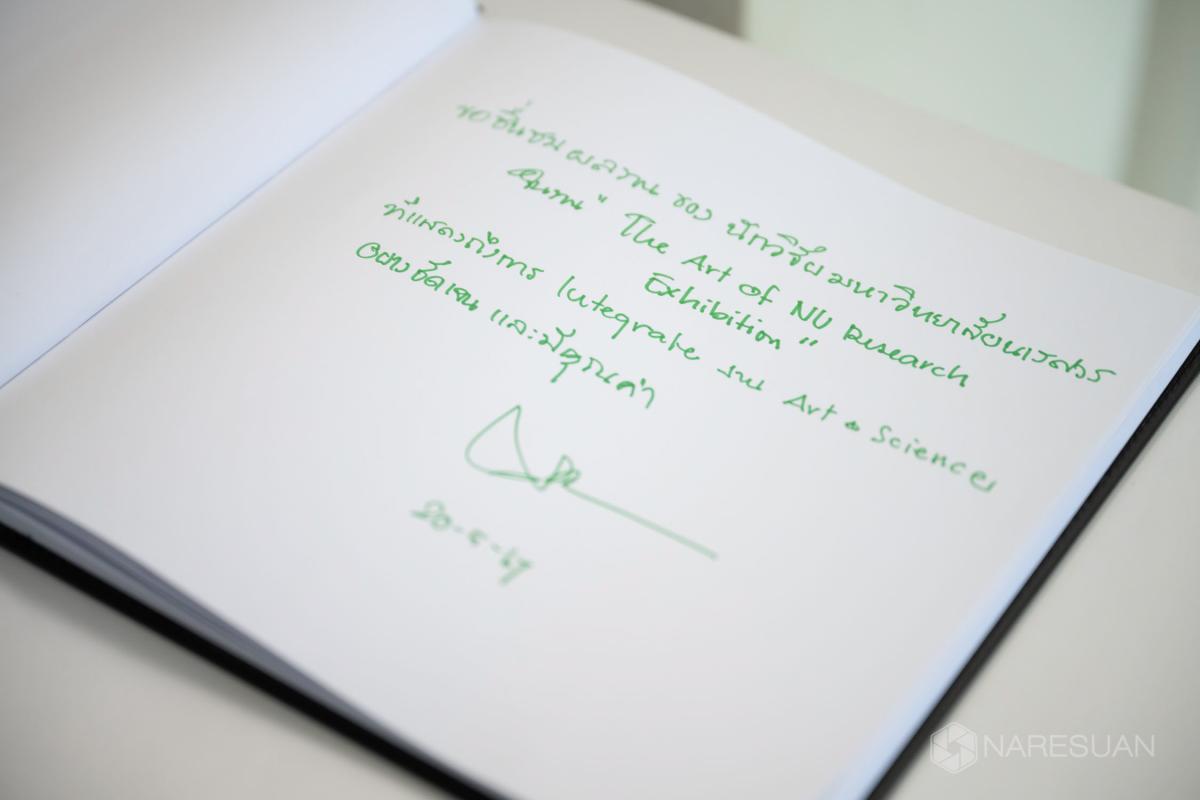 ขอชื่นชมผลงาน ของ นักวิจัยมหาวิทยาลัยนเรศวร
ในงาน " The Art of NU Research
Exhibition "
ที่แสดงถึงการ Integrate งาน Art & Science
อย่างชัดเจน และมีคุณค่า
20-5-67
NARESUAN